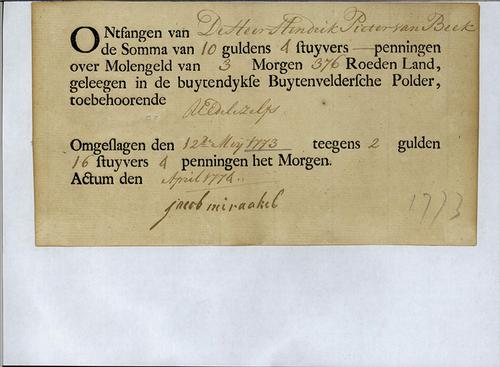 ONtfangen van De Heer Hendrik Pieter van Beek
de Somma van 10 guldens 4 stuyvers — penningen
over Molengeld van 3 Morgen 376 Roeden Land,
geleegen in de buytendykse Buytenveldersche Polder,
toebehoorende
UEdele zelfs
Omgeslagen den 12e Meij 1773 teegens 2 gulden
16 stuyvers 4 penningen het Morgen.
Actum den April 1774
jacob miraakel
1773